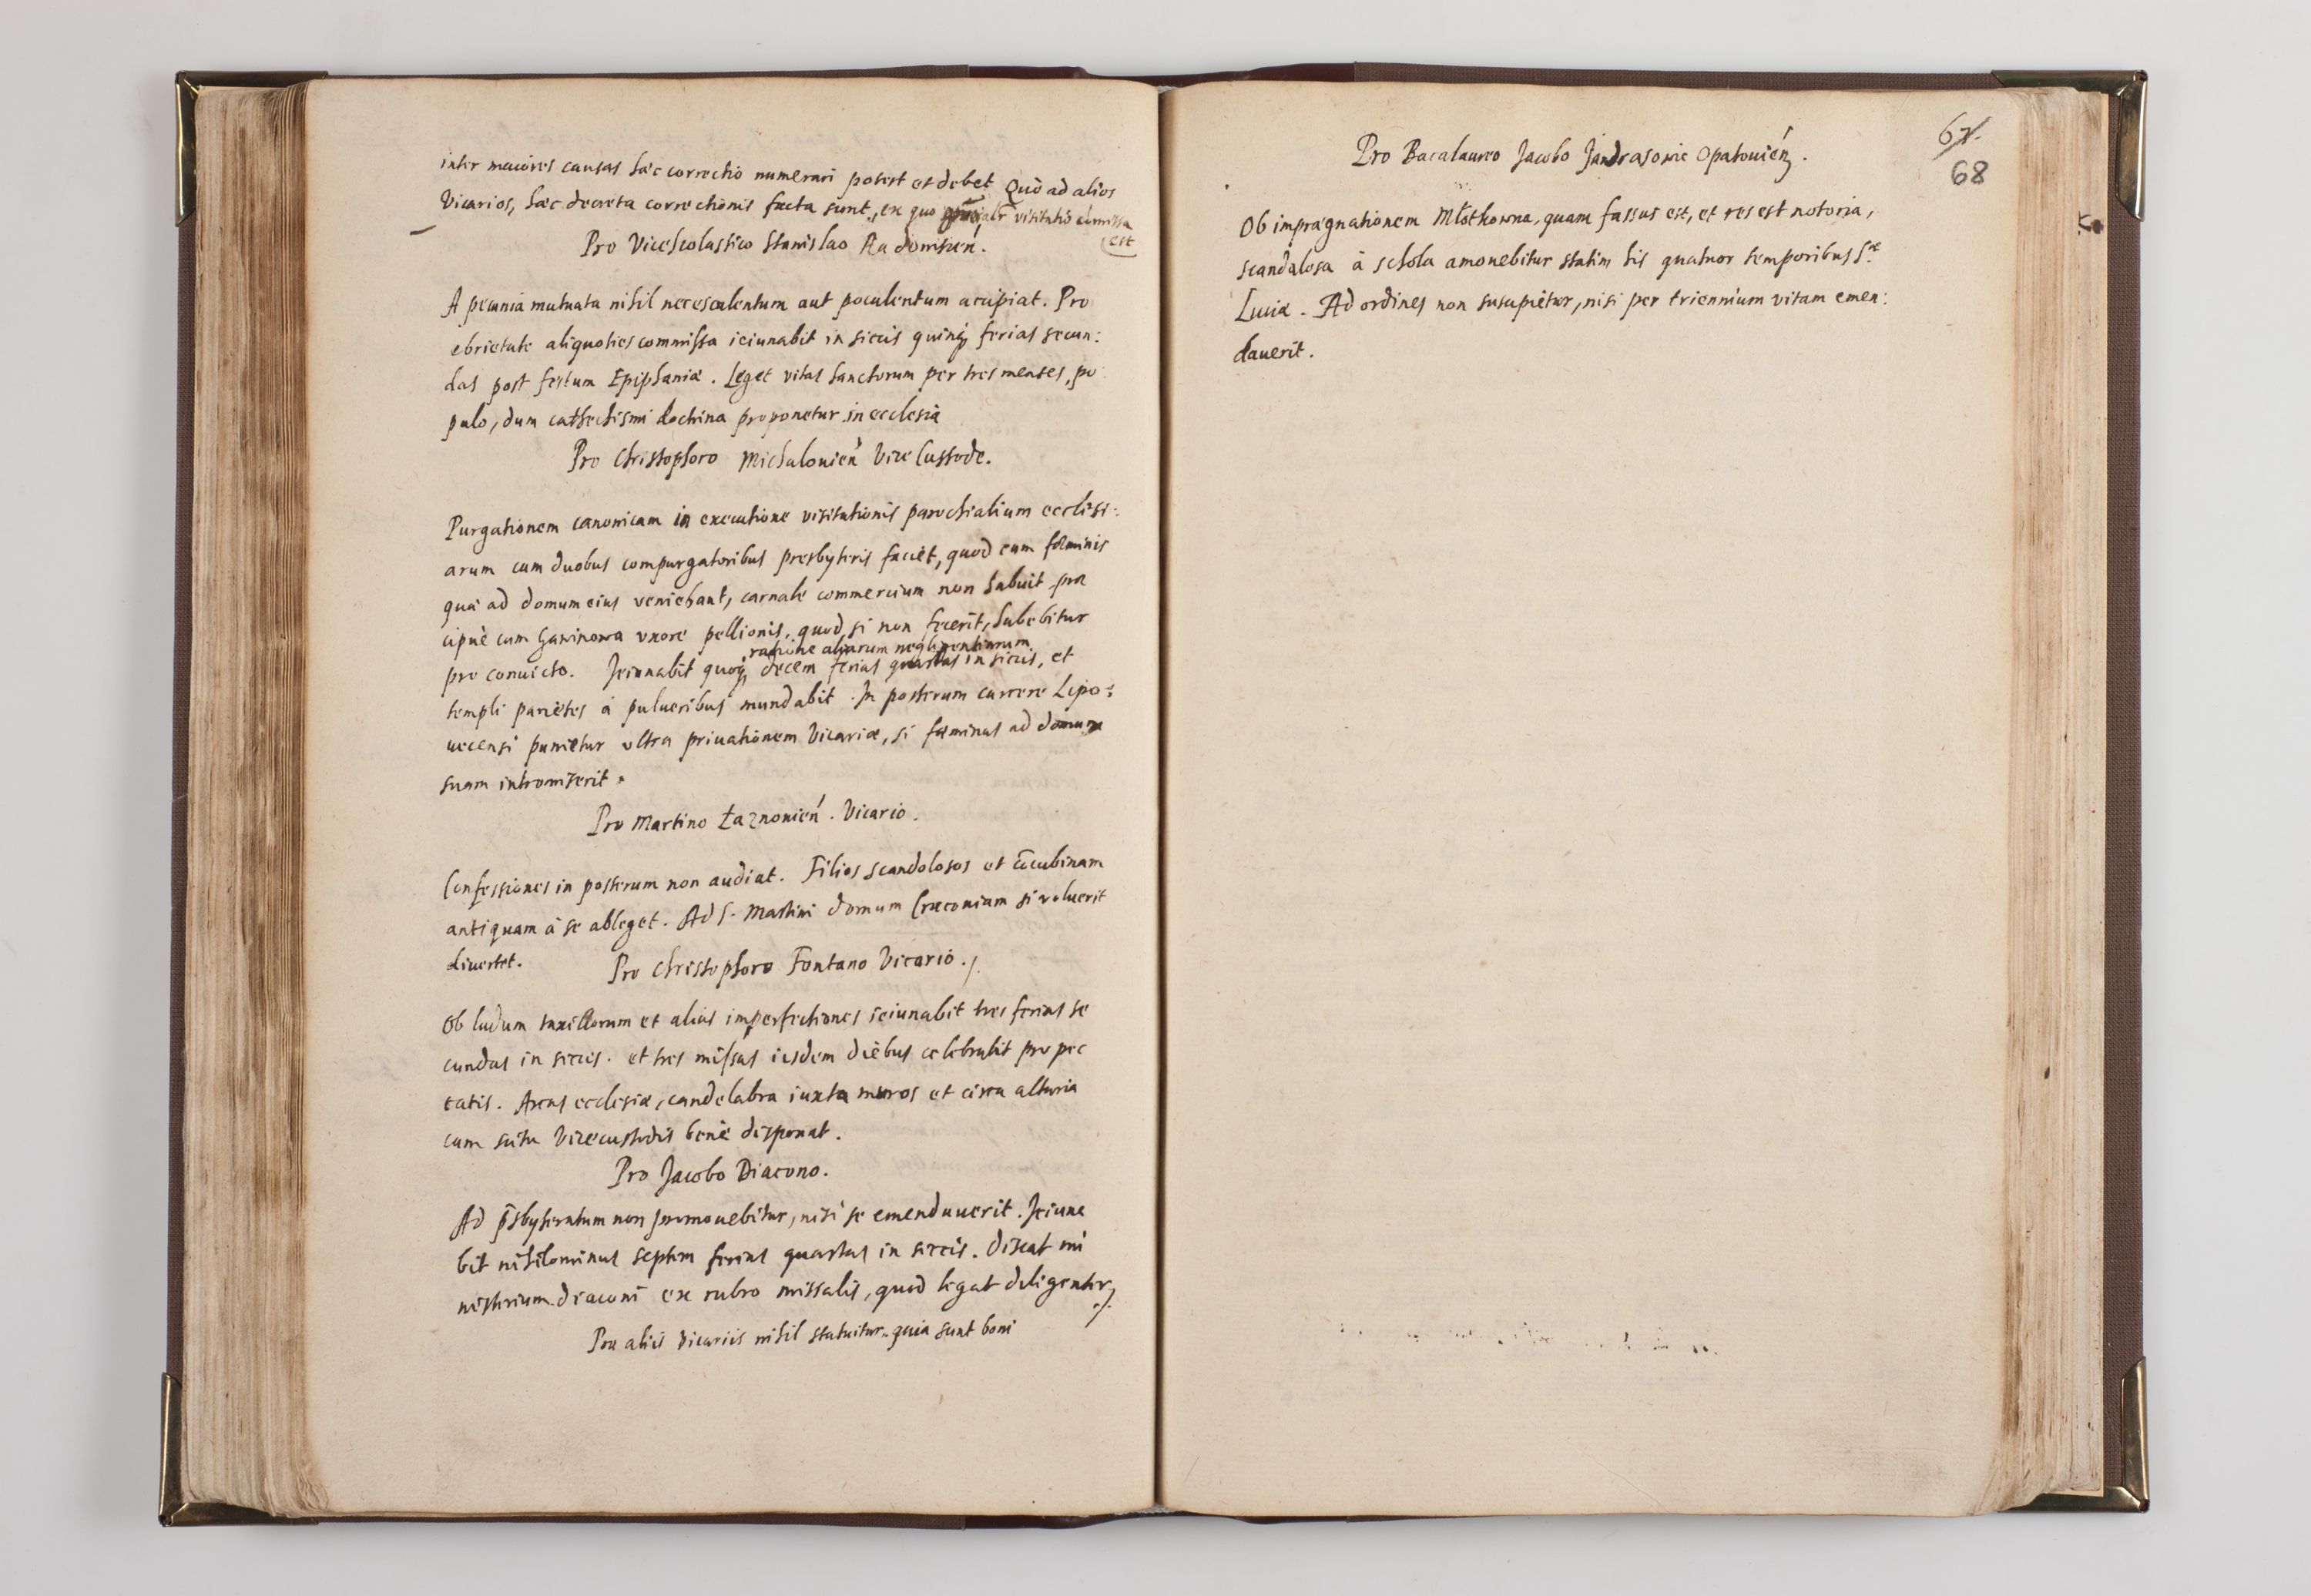 inter maiores causas haec correctio numerari potest et debet Quo ad alios
Vicarios, haec decreta correctionis facta sunt, ex quo visitatio
est
Pro ViceScolastico Stanislao Radomień.
A pecunia mutuata nihil nec esculentum aut poculentum accipiat. Pro
ebrietate aliquoties commissa ieiunabit in siccis quinq ferias secun:
das post festum Epiphaniæ. Leget vitas Sanctorum per tres menses, po
pulo, dum cathechismi doctrina proponetur in ecclesia
Pro Christophoro Michalouień Vice Custode.
Purgationem canonicam in executione visitationis parochialium ecclesi:
arum cum duobus compurgatoribus presbyteris faciet, quod cum fæminis
quæ ad domum eius veniebant, carnale commercium non habuit præ
cipuè cum Gawinowa vxore pellionis, quod si non fecerit, habebitur
ratione aliarum negligentiarum
pro conuicto. Ieiunabit quoq decem ferias quartas in siccis, et
templi parietes à pulueribus mundabit. In posterum carcere Lipo:
uecensi punietur vltra priuationem Vicariæ, si fæminas ad domum
suam intromiserit.
Pro Martino Łaznouień. Vicario.
Confessiones in posterum non audiat. Filios scandolosos et cōcubinam
antiquam à se ableget. Ad S. Martini domum Cracouiam si voluerit
diuertet.
Pro Christophoro Fontano Vicario./.
Ob ludum taxillorum et alias imperfectiones ieiunabit tres ferias se
cundas in siccis. et tres missas iisdem diebus celebrabit pro pec
catis. Arcas ecclesiæ, candelabra iuxta muros et circa altaria
cum scitu Vicecustodis benè disponat.
Pro Jacobo Diacono.
Ad p̄sbyteratum non promouebitur, nisi se emendauerit. Ieiuna
bit nihilominus septem ferias quartas in siccis. Discat mi
nisterium diaconi ex rubro missalis, quod legat diligenter
./.
Pro aliis vicariis nihil statuitur quia sunt boni
67.
68
Pro Bacalaureo Jacobo Jandrasowic Opatouień.
Ob imprægnationem Młotkowna, quam fassus est, et res est notoria,
scandalosa à schola amouebitur statim his quatuor temporibus S.æ
Luciæ. Ad ordines non suscipietur, nisi per triennium vitam emen:
dauerit.